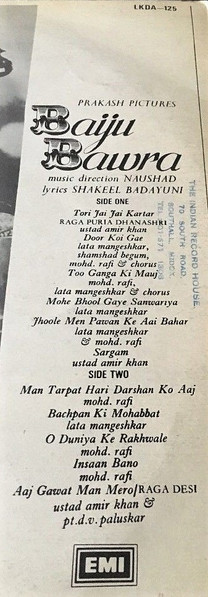 LKDA-125
PRAKASH PICTURES
Baiju
Bawra
music direction NAUSHAD
lyrics SHAKEEL BADAYUNI
SIDE ONE
Tori Jai Jai Kartar
RAGA PURIA DHANASHRI
ustad amir khan
Door Koi Gae
lata mangeshkar,
thamshad begum,
mohd. rafi & chorus
Too Ganga Ki Mauj
mohd. rafi,
lata mangeshkar & chorus
Mohe Bhool Gaye Sanwariya
lata mangeshkar
Jhoole Men Pawan Ke Aai Bahar
lata mangeshkar
& mohd. rafi
Sargam
ustad amir khan
SIDE TWO
Man Tarpat Hari Darshan Ko Aaj
mohd. rafi
Bachpan Ki Mohabbat
lata mangeshkar
O Duniya Ke Rakhwale
mohd. rafi
Insaan Bano
mohd. rafi
Aaj Gawat Man Mero/RAGA DESI
ustad amir khan &
pt.d.v. paluskar
EMI
THE INDIAN RECORD HOUSE
70 SOUTH ROAD,
SOUTHALL, MIDDX.